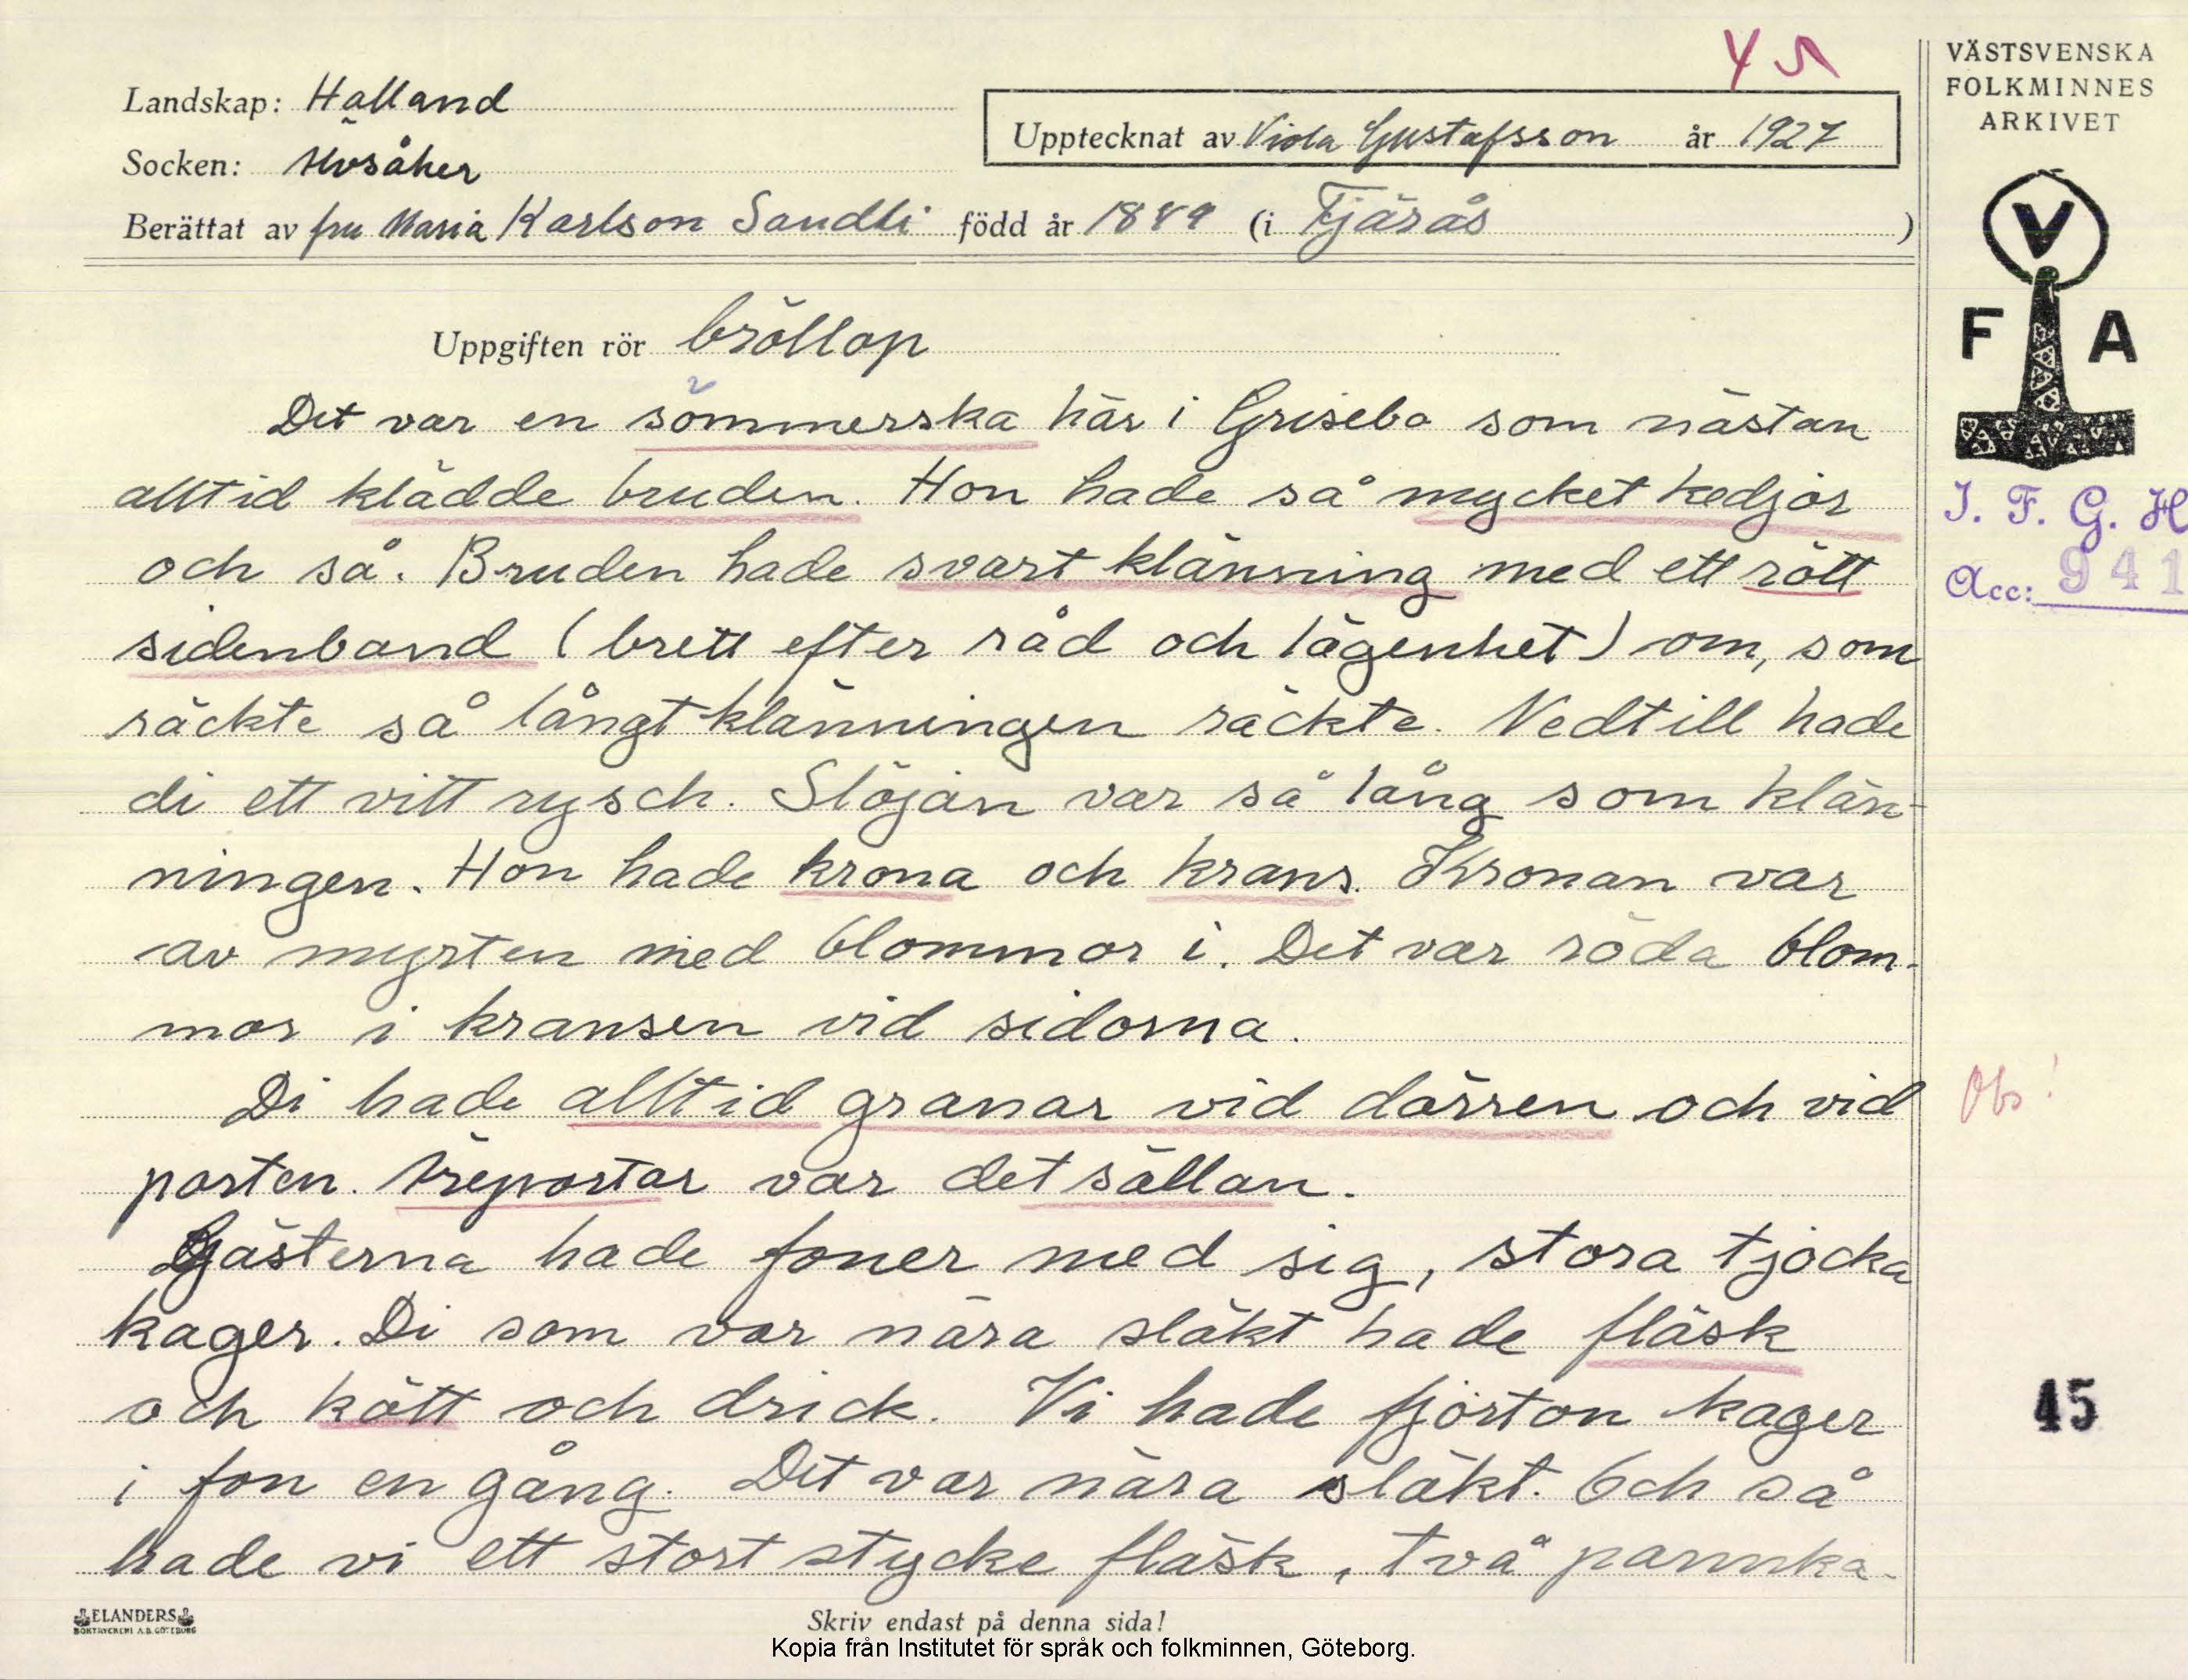 VÄSTSVENSKA
FOLKMINNES
ARKIVET
Landskap: Halland
Upptecknat av Viola Gustafsson år 1927
Socken: Ölvsåker
Berättat av fru Maria Karlson Sandli född år 1849 (i Fjärås)
V
F A
Uppgiften rör bröllop
Det var en sömmerska här i Grisebo som nästan
alltid klädde bruden. Hon hade så mycket kedjor
och så. Bruden hade svart klänning med ett rött
sidenband (brett efter råd och lägenhet) om, som
räckte så långt klänningen räckte. Nedtill hade
di ett vitt rysch. Slöjan var så lång som klän-
ningen. Hon hade krona och krans. Kronan var
av myrten med blommor i. Det var röda blom-
mor i kransen vid sidorna.
Di hade alltid granar vid dörren och vid
porten. Äreportar var det sällan.
Gästerna hade foner med sig, stora tjocka
kager. Di som var nära släkt hade fläsk
och kött och drick. Vi hade fjorton kager
i fon en gång. Det var nära släkt. Och så
hade vi ett stort stycke fläsk, två pannka-
I. F. G. H
Acc: 941
Obs!
45
ELANDERS
BOKTRYCKERI A.B. GÖTEBORG
Skriv endast på denna sida!
Kopia från Institutet för språk och folkminnen, Göteborg.